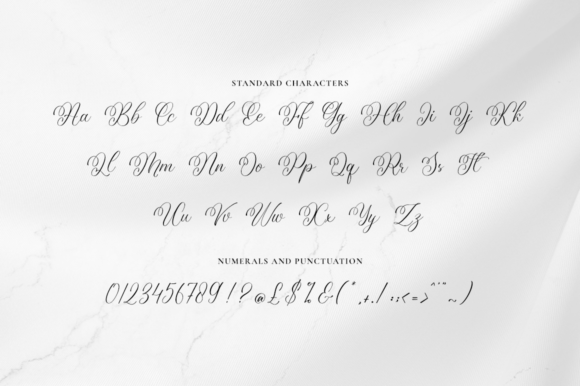 STANDARD CHARACTERS
Aa Bb Cc Dd Ee Ff Gg Hh Ii Jj Kk
Ll Mm Nn Oo Pp Qq Rr Ss Tt
Uu Vv Ww Xx Yy Zz
NUMERALS AND PUNCTUATION
0123456789!?@£$%&(",+./:;<=>^'"~)